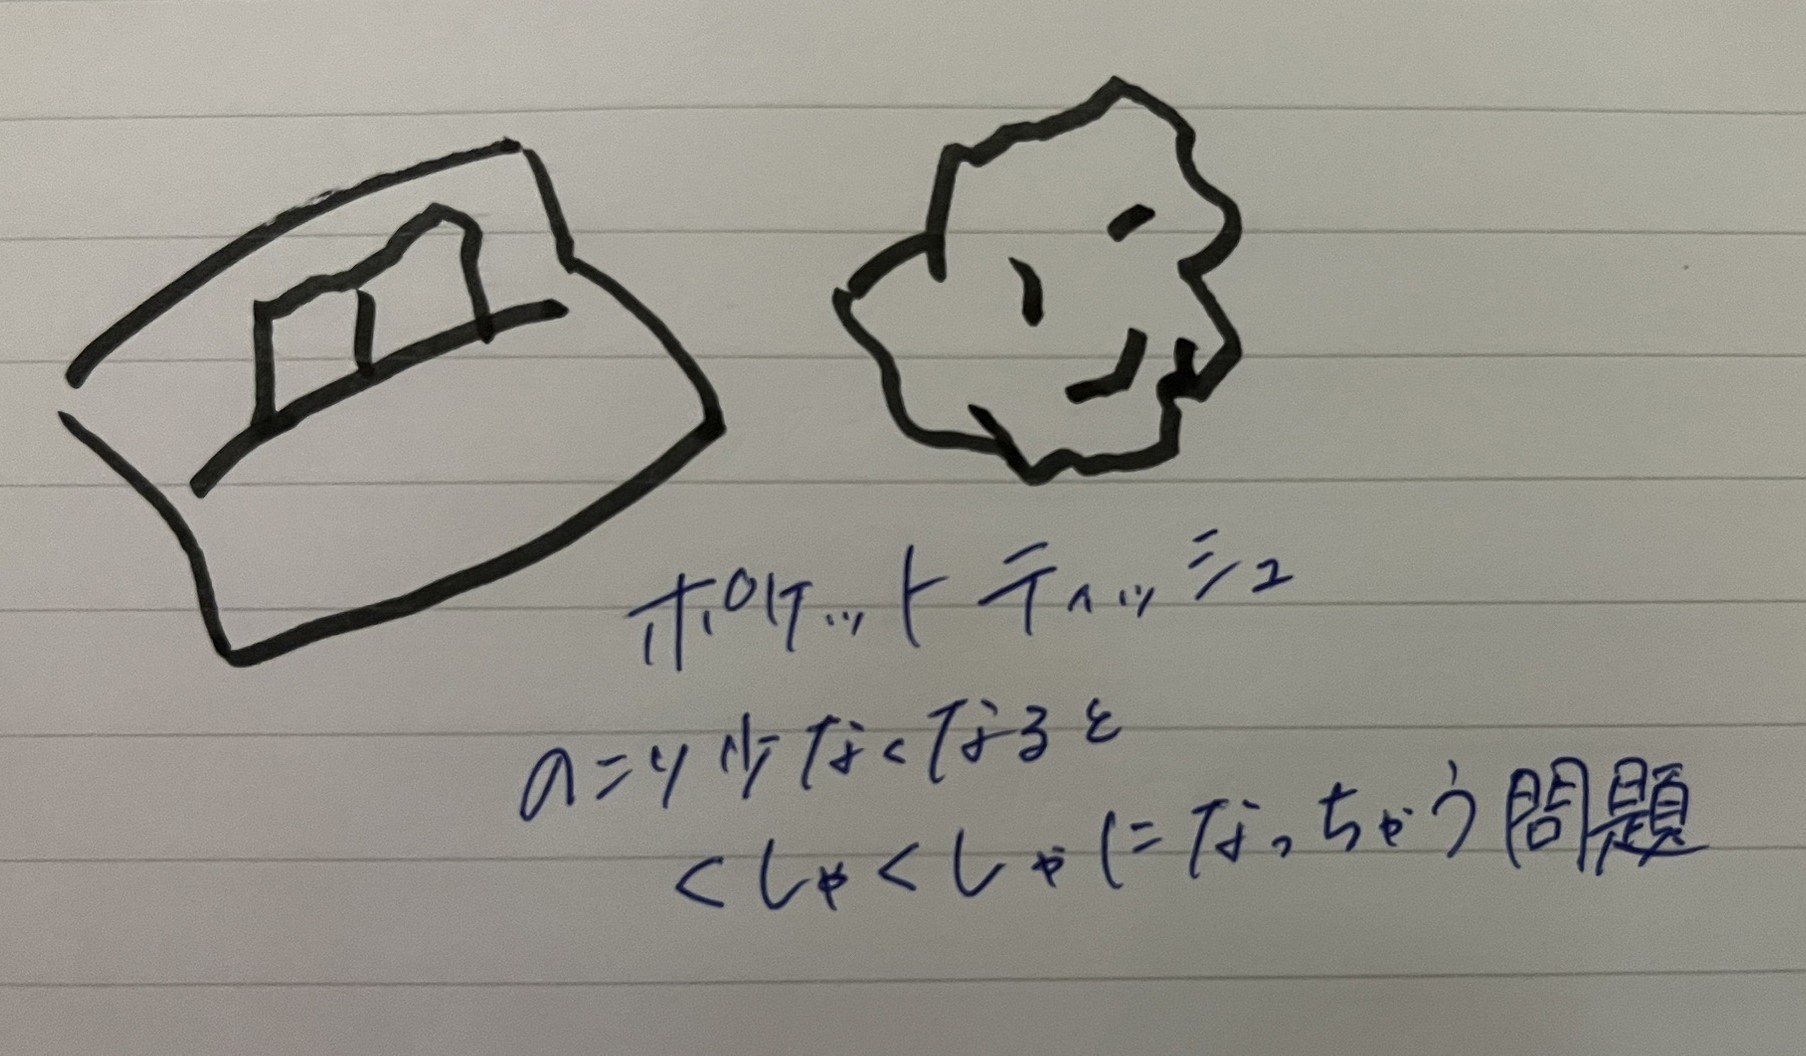 ポケットティッシュ
のこり少なくなると
くしゃくしゃになっちゃう問題